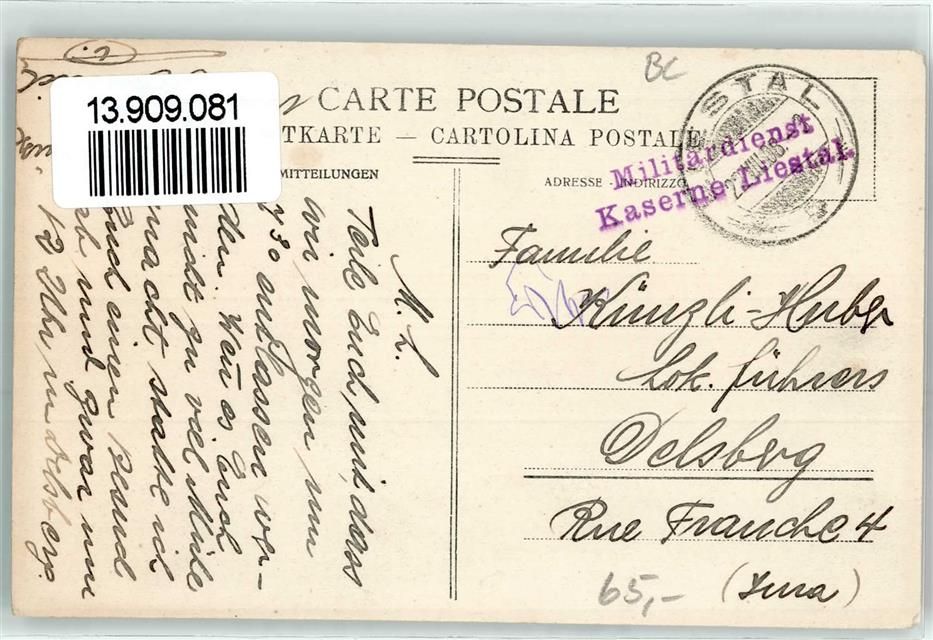 13.909.081
BC
CARTE POSTALE
TKARTE — CARTOLINA POSTALE
MITTEILUNGEN
ADRESSE - INDIRIZZO
STAL
Militärdienst
Kaserne Liestal.
M. L.
Teile Euch mit, dass
wir morgen um
730 entlassen wer-
den. Wen es Euch
nicht zu viel Mühe
macht statte ich
Euch einen Besuch
ab, und zwar um
1/2 Uhr in Delsberg.
Familie
Künzli-Huber
Lok. führers
Delsberg
Rue Franche 4
(Jura)
65,-